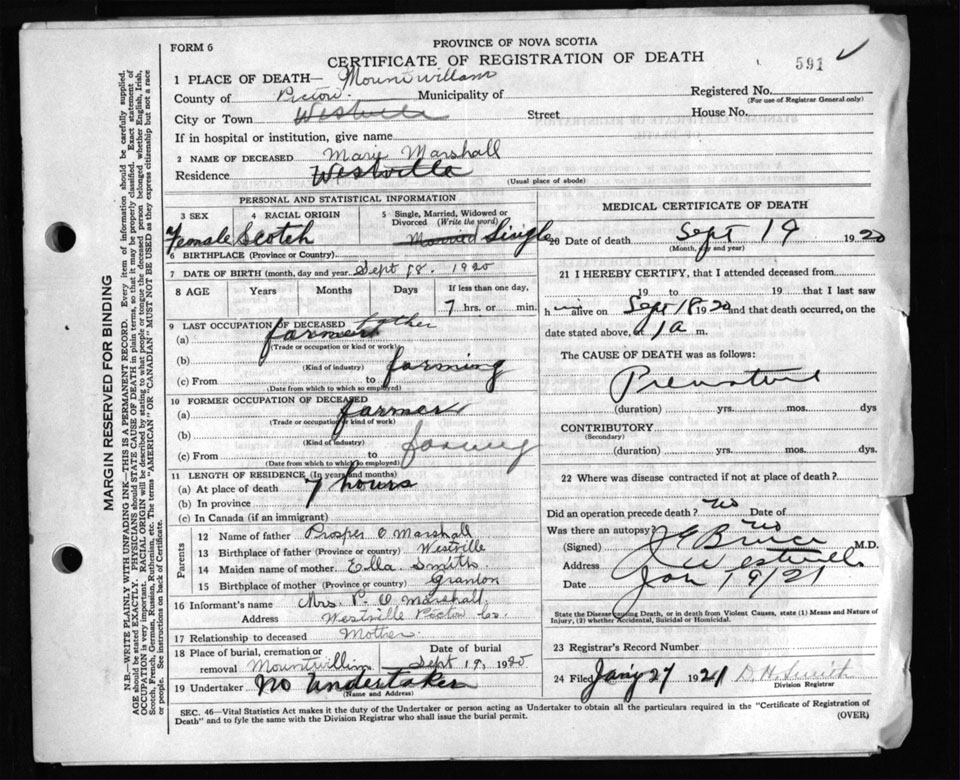 FORM 6
PROVINCE OF NOVA SCOTIA
CERTIFICATE OF REGISTRATION OF DEATH
591
1 PLACE OF DEATH— Mountwilliam
County of Pictou Municipality of
Registered No.
(For use of Registrar General only)
City or Town Westville Street House No.
If in hospital or institution, give name
2 NAME OF DECEASED Marie Marshall
Residence Westville
(Usual place of abode)
PERSONAL AND STATISTICAL INFORMATION
3 SEX
Female
4 RACIAL ORIGIN
Scotch
5 Single, Married, Widowed or Divorced (Write the word)
Married Single
6 BIRTHPLACE (Province or Country)
7 DATE OF BIRTH (month, day and year) Sept 18. 1920
8 AGE Years Months Days If less than one day,
7 hrs. or min.
9 LAST OCCUPATION OF DECEASED father
(a) farmer
(Trade or occupation or kind of work)
(b) farming
(Kind of industry)
(c) From to
(Date from which to which so employed)
10 FORMER OCCUPATION OF DECEASED
(a) farmer
(Trade or occupation or kind of work)
(b) farming
(Kind of industry)
(c) From to
(Date from which to which so employed)
11 LENGTH OF RESIDENCE (In years and months)
(a) At place of death 7 hours
(b) In province
(c) In Canada (if an immigrant)
Parents
12 Name of father Prosper O Marshall
13 Birthplace of father (Province or country) Westville
14 Maiden name of mother. Ella Smith
15 Birthplace of mother (Province or country) Granton
16 Informant's name Mrs. P. O. Marshall
Address Westville Pictou Co.
17 Relationship to deceased Mother
18 Place of burial, cremation or removal Mountwilliam
Date of burial Sept 19, 1920
19 Undertaker No Undertaker
(Name and Address)
MEDICAL CERTIFICATE OF DEATH
20 Date of death Sept 19 1920
(Month, day and year)
21 I HEREBY CERTIFY, that I attended deceased from
19 to 19 that I last saw
him alive on Sept 18 1920 and that death occurred, on
date stated above, at 1 a m.
The CAUSE OF DEATH was as follows:
Premature
(duration) yrs. mos. dys
CONTRIBUTORY
(Secondary)
(duration) yrs. mos. dys.
22 Where was disease contracted if not at place of death?
Did an operation precede death? No Date of
Was there an autopsy? No
(Signed) J E Bruce M.D.
Address Westville
Date Jan 19/21
State the Disease causing Death, or in death from Violent Causes, state (1) Means and Nature of Injury, (2) whether Accidental, Suicidal or Homicidal.
23 Registrar's Record Number
24 Filed Jany 27 1921 D. H. Smith
Division Registrar
SEC. 46—Vital Statistics Act makes it the duty of the Undertaker or person acting as Undertaker to obtain all the particulars required in the "Certificate of Registration of
Death" and to fyle the same with the Division Registrar who shall issue the burial permit.
(OVER)
MARGIN RESERVED FOR BINDING
N.B.—WRITE PLAINLY WITH UNFADING INK—THIS IS A PERMANENT RECORD. Every item of information should be carefully supplied.
AGE should be stated EXACTLY. PHYSICIANS should STATE CAUSE OF DEATH in plain terms, so that it may be properly classified. Exact statement of
OCCUPATION is very important. RACIAL ORIGIN will be described by stating to what people or tongue the deceased person belonged whether English, Irish,
Scotch, French, German, Russian, Ruthenian, etc. The terms "AMERICAN" OR "CANADIAN" MUST NOT BE USED as they express citizenship but not a race
or people. See instructions on back of Certificate.